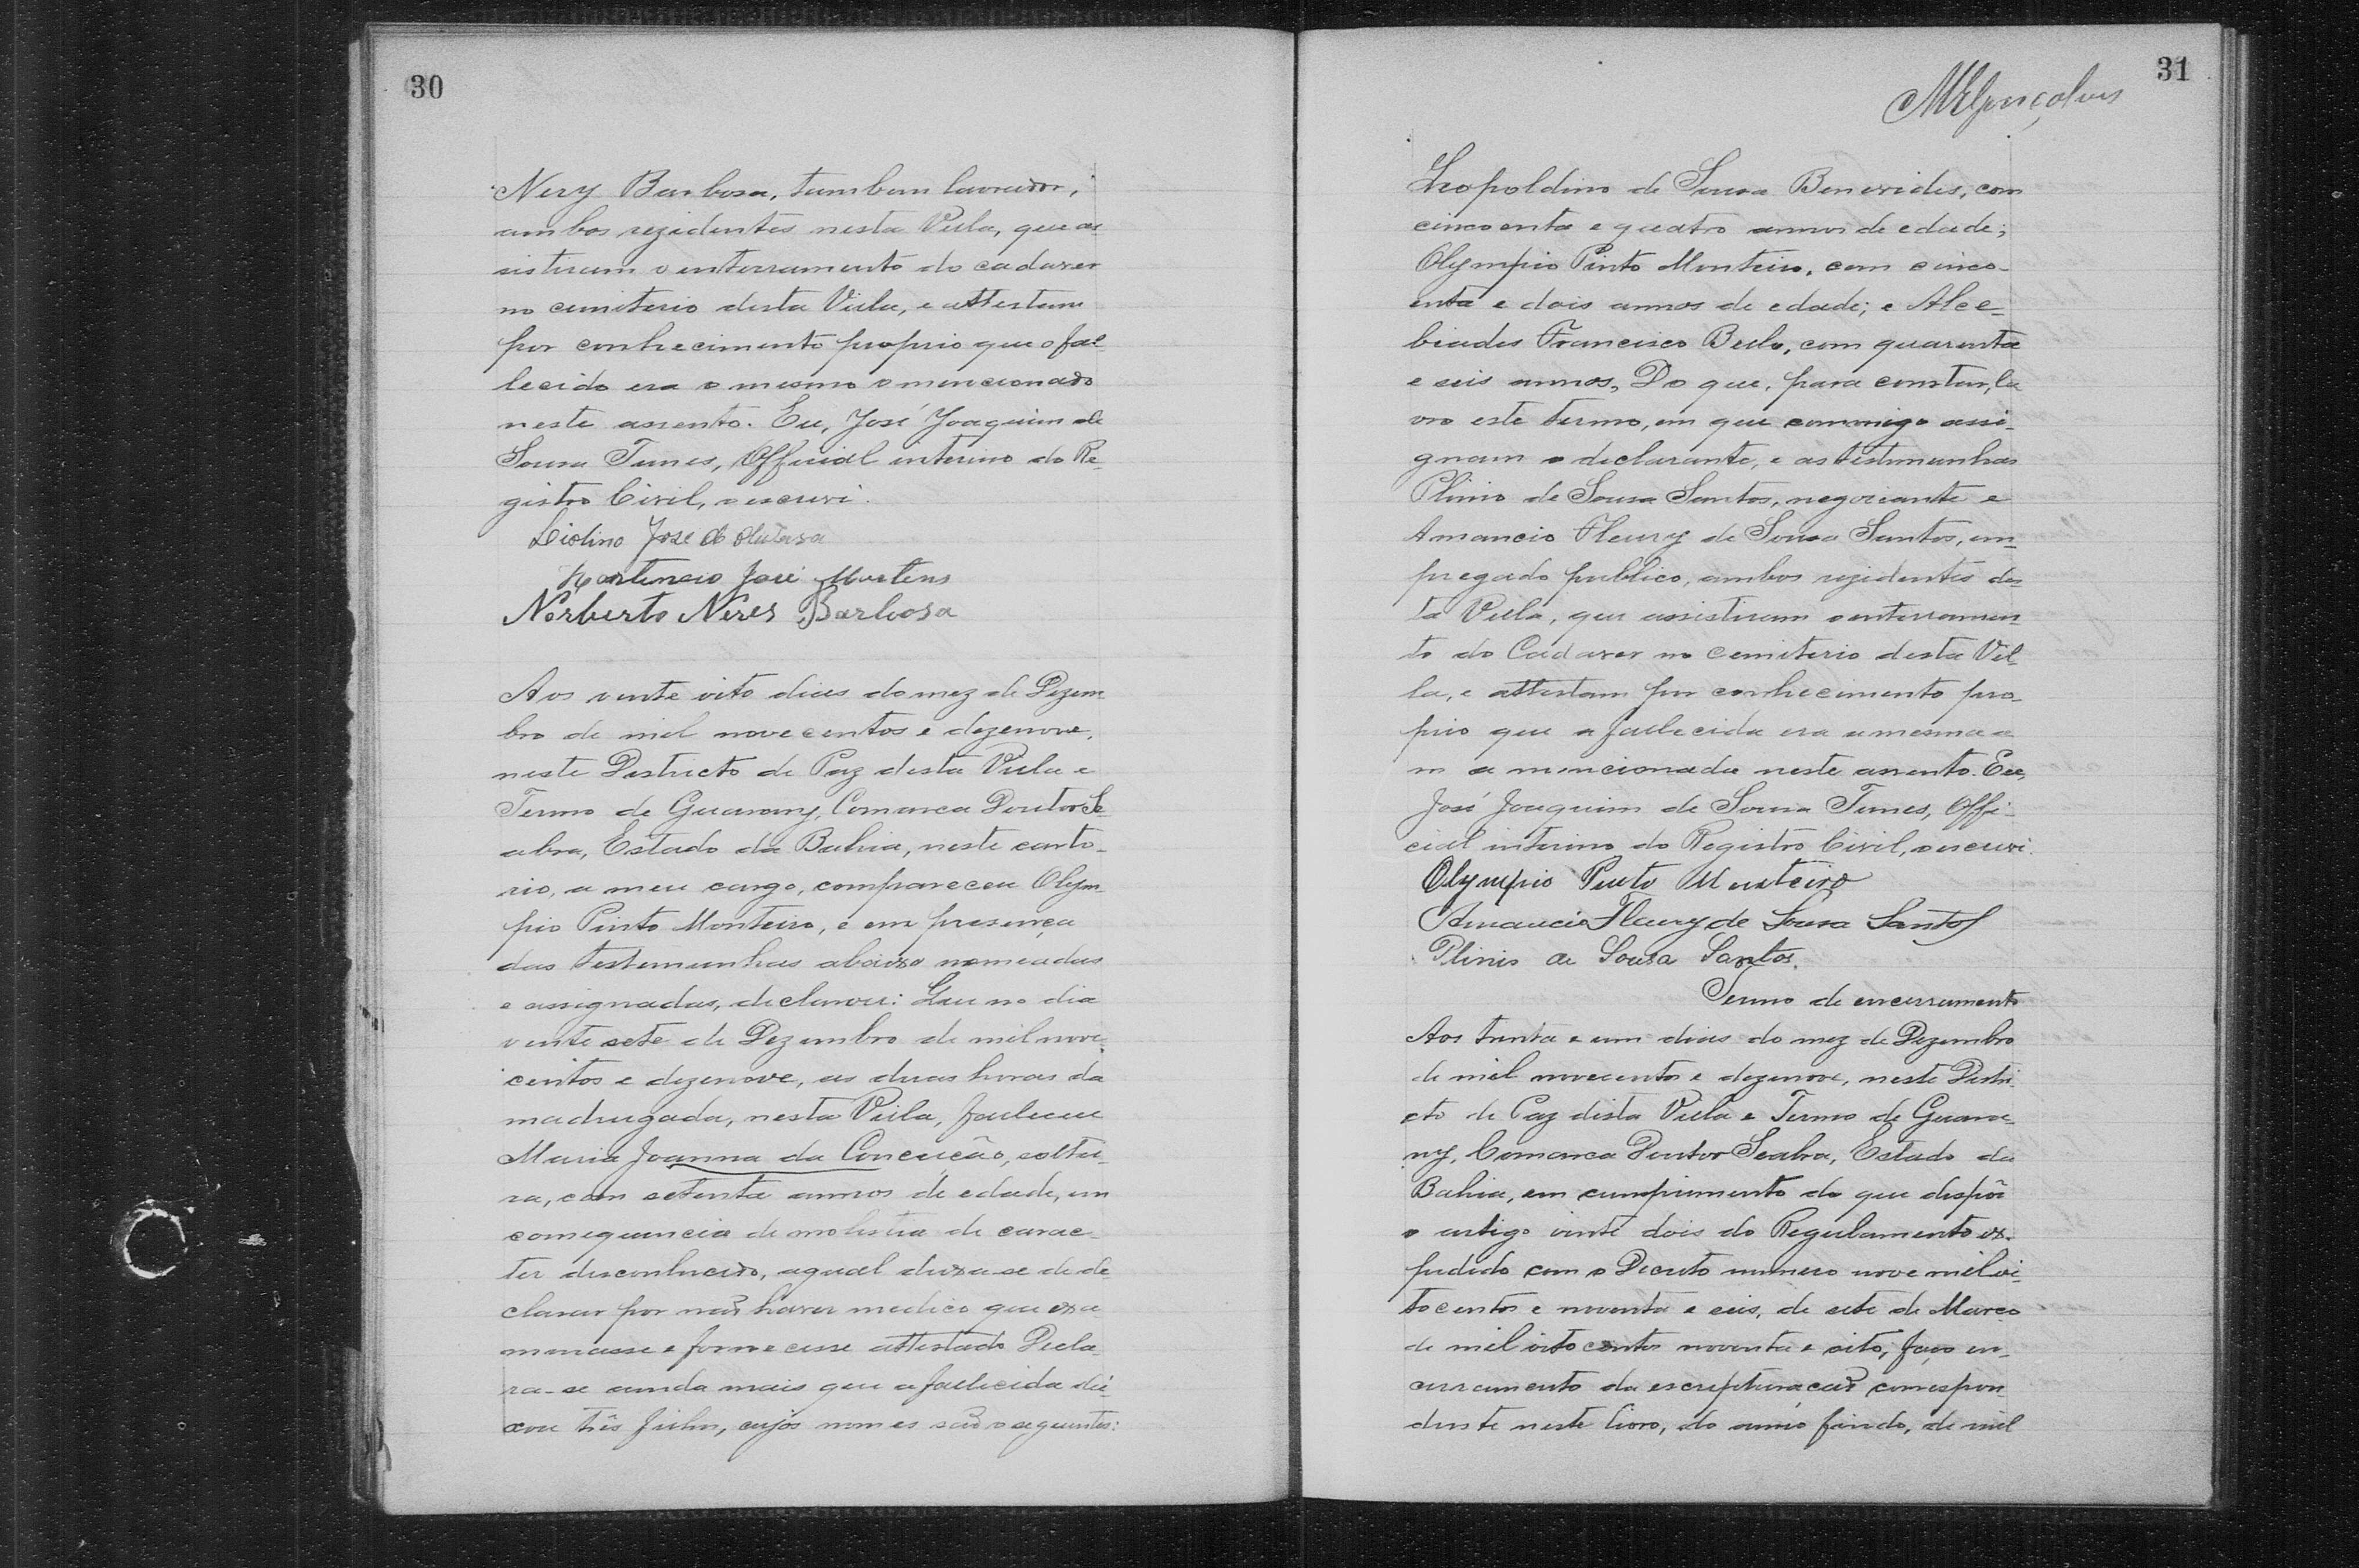 30
Nery Barbosa, tambem lavrador,
ambos rezidentes nesta Villa, que as-
sistiram o enterramento do cadaver
no cemiterio desta Villa, e attestam
por conhecimento proprio que o fal-
lecido era o mesmo o mencionado
neste assento. Eu, José Joaquim de
Sousa Tunes, Official interino do Re-
gistro Civil, o escrevi.
José de
Hortencio José Martens
Norberto Neres Barbosa
Aos vinte oito dias do mez de Dezem
bro de mil novecentos e dezenove,
neste Destricto de Paz desta Villa e
Termo de Guarany, Comarca Doutor Se-
abra, Estado da Bahia, neste carto-
rio, a meu cargo, compareceu Olym-
pio Pinto Monteiro, e em presença
das testemunhas abaixo nomeadas
e assignadas, declarou: Que no dia
vinte sete de Dezembro de mil nove-
centos e dezenove, as duas horas da
madrugada, nesta Villa, falleceu
Maria Joanna da Conceição, soltei-
ra, com setenta annos de edade, em
consequencia de molestia de carac-
ter desconhecido, aqual deixa-se de de
clarar por não haver medico que exa
minasse e fornecesse attestado. Decla-
ra-se ainda mais que a fallecida dei-
xou três filhos, cujos nomes são o seguintes:
31
MRGonçalves
Leopoldino de Sousa Benevides, com
cincoenta e quatro annos de edade;
Olympio Pinto Monteiro, com cinco-
enta e dois annos de edade; e Alce-
biades Francisco Bello, com quarenta
e seis annos. Do que, para constar, la
vro este termo, em que commigo assi-
gnam o declarante, e as testemunhas
Plinio de Sousa Santos, negociante e
Amancio Fleury de Sousa Santos, em-
pregado publico, ambos rezidentes des-
ta Villa, que assistiram o enterramen-
to do Cadaver no cemiterio desta Vil-
la, e attestam por conhecimento pro-
prio que a fallecida era a mesma a
m a mencionada neste assento. Eu,
José Joaquim de Sousa Tunes, Offi-
cial interino do Registro Civil, o escrevi.
Olympio Pinto Monteiro
Amancio Fleury de Sousa Santos
Plinio de Sousa Santos.
Termo de encerramento
Aos trinta e um dias do mez de Dezembro
de mil novecentos e dezenove, neste Destri-
cto de Paz desta Villa e Termo de Guara-
ny, Comarca Doutor Seabra, Estado da
Bahia, em cumprimento do que dispõe
o artigo vinte dois do Regulamento ex-
pedido com o Decreto numero nove mil oi-
tocentos e noventa e seis, de sete de Março
de mil oitocentos noventa e oito, faço en-
cerramento da escripturação correspon-
dente neste livro, do anno findo, de mil